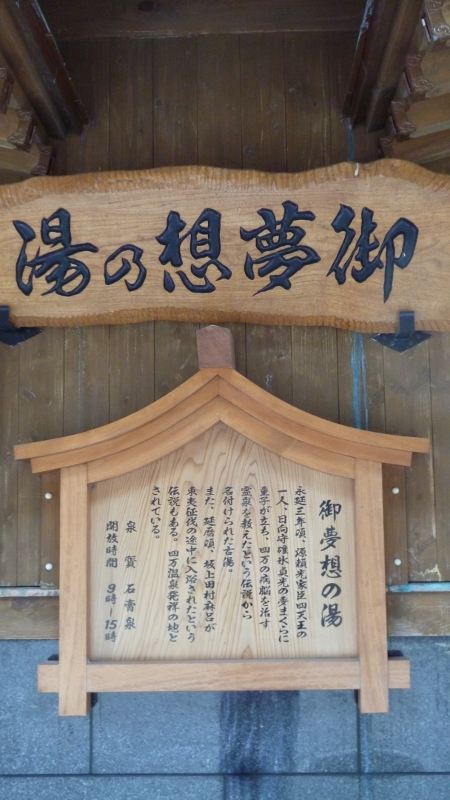 御夢想乃湯
御夢想の湯
永延三年頃、源頼光家臣四天王の
一人、日向守碓氷貞光の夢まくらに
童子が立ち、四万の病脳を治す
霊泉を教えたという伝説から
名付けられた古湯。
また、延暦頃、坂上田村麻呂が
東夷征伐の途中に入浴されたという
伝説もある。四万温泉発祥の地と
されている。
泉質 石膏泉
開放時間 9時~15時